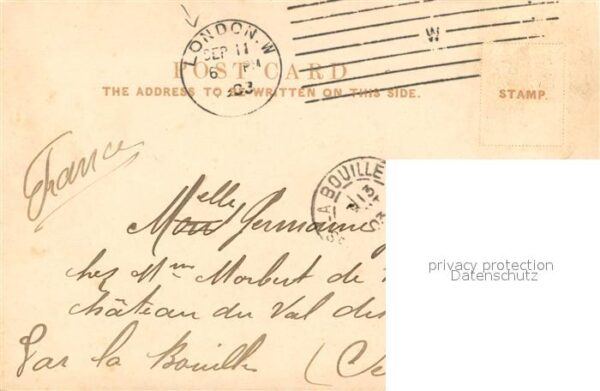 LONDON.W
SEP 11
6 PM
03
W
POST CARD
THE ADDRESS TO BE WRITTEN ON THIS SIDE.
STAMP.
France
LA BOUILLE
13
03
elle
M Germaine
chez Mme Morbert de
château du Val des
Par la Bouille (Se
privacy protection
Datenschutz